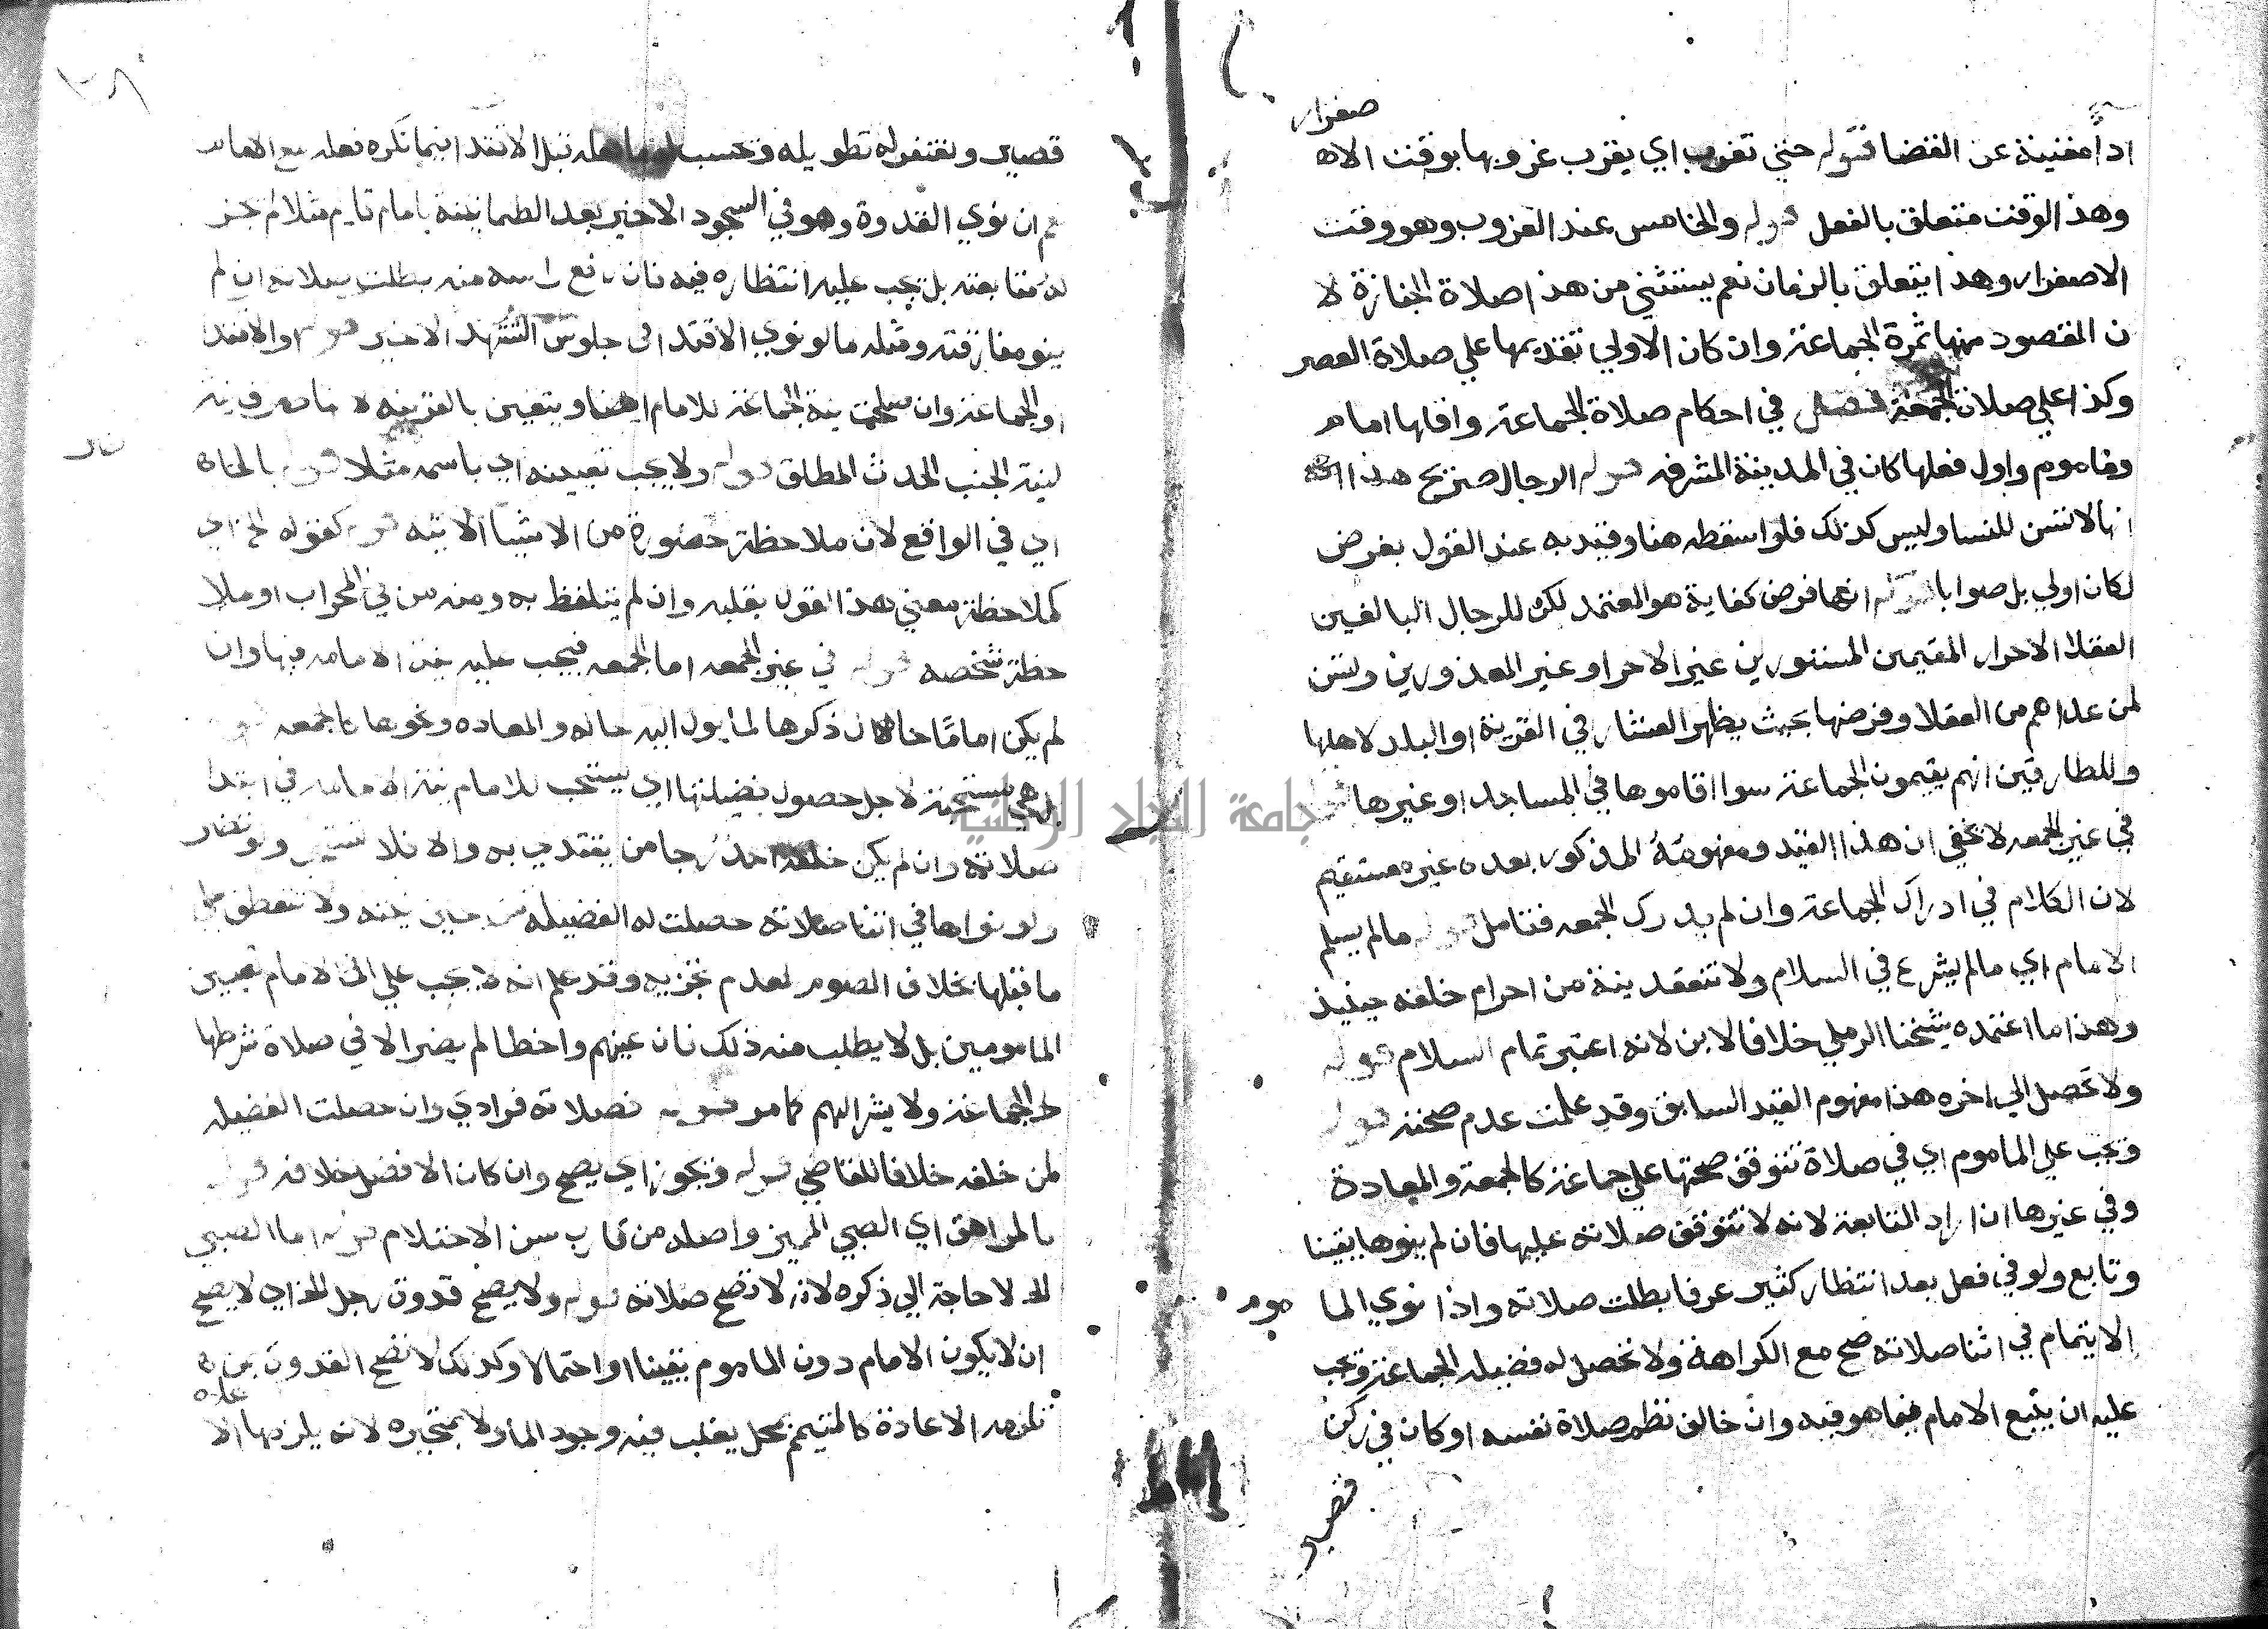 صفرار
ادا مغنية عن القضا قوله حتي تغرب اي يقرب غروبها بوقت الا
وهذا الوقت متعلق بالفعل قوله والخامس عند الغروب وهو وقت
الاصفرار وهذا يتعلق بالزمان نعم يستثني من هذا صلاة الجنازة لا
ن المقصود منها ثمرة الجماعة وان كان الاولي تقديمها علي صلاة العصر
وكذا علي صلاة الجمعة فصل في احكام صلاة الجماعة واقلها امام
وماموم واول فعلها كان في المدينة المشرفه قوله الرجال صريح هذا
انها لا تسن للنسا وليس كذلك فلو اسقطه هنا وقيد به عند القول بفرض
لكان اولي بل صوابا قوله انها فرض كفاية هو المعتمد لكن للرجال البالغين
العقلا الاحرار المقيمين المستورين غير الاجرا وغير المعذورين وتسن
لمن عداهم من العقلا وفرضها بحيث يظهر الشعار في القرية او البلد لاهلها
وللطارقين انهم يقيمون الجماعة سوا اقاموها في المساجد او غيرها قوله
في غير الجمعه لا يخفي ان هذا القيد ومفهومه المذكور بعده غير مستقيم
لان الكلام في ادراك الجماعة وان لم يدرك الجمعه فتامل قوله مالم يسلم
الامام اي مالم يشرع في السلام ولا تنعقد نية من احرم خلفه حينيذ
وهذا ما اعتمده شيخنا الرملي خلافا لابن لانه اعتبر تمام السلام قوله
ولا تحصل الي اخره هذا مفهوم القيد السابق وقد علمت عدم صحته قوله
وتجب علي الماموم اي في صلاة تتوقف صحتها علي جماعة كالجمعة والمعادة
وفي غيرها ان اراد المتابعة لانه لا تتوقف صلاته عليها فان لم ينوها يقينا
وتابع ولو في فعل بعد انتظار كثير عرفا بطلت صلاته واذا نوي الما موم
الايتمام في اثنا صلاته صح مع الكراهة ولا تحصل له فضيله الجماعة وتجب
عليه ان يتبع الامام فيما هو فيه وان خالف نظم صلاة نفسه او كان في ركن
قصير
قصير ويغتفر له تطويله وتحسب له ما فعله قبل الاقتدا فيما تكره فعله مع الامام
نعم ان نوي القدوة وهو في السجود الاخير بعد الطمانينة بامام قايم مثلا لم يجز
له متابعته بل يجب عليه انتظاره فيه فان رفع راسه منه بطلت صلاته ان لم
ينو مفارقته ومثله ما لو نوي الاقتدا في جلوس التشهد الاخير قوله والاقتدا
او الجماعة وان صلحت نية الجماعة للامام ايضا ويتعين بالقرينه لا
لنية الجنب الحدث المطلق قوله ولا يجب تعيينه اي باسمه مثلا قوله
اي في الواقع لان ملاحظة حضورة من الاشيا الاتيه قوله كقوله الخ اي
كملاحظة معني هذا القول بقلبه وان لم يتلفظ به ومنه من في المحراب او ملا
حظة شخصه قوله في غير الجمعه اما الجمعه فيجب عليه نية الامامه فيها وان
لم يكن اماما حالا لان ذكرها لما يول اليه حاله والمعاده ونحوها كالجمعه قوله
بل هي مستحبة لاجل حصول فضيلتها اي يستحب للامام نية الامامه في ابتدا
صلاته وان لم يكن خلفه احد رجا من يقتدي به والا فلا تستحب
ولو نواها في اثنا صلاته حصلت له الفضيله من حين نيته ولا تنعطف علي
ما قبلها بخلاف الصوم لعدم تجزيه وقد علم انه لا يجب علي الامام تعيين
المامومين بل لا يطلب منه ذلك فان عينهم واخطا لم يضر الا في صلاة شرطها
الجماعة ولا يشر اليهم كما مر قوله فصلاته فرادي وان حصلت الفضيله
لمن خلفه خلافا للقاضي قوله ويجوز اي يصح وان كان الافضل خلافه قوله
بالمراهق اي الصبي المميز واصله من قارب سن الاحتلام قوله اما الصبي
الخ لا حاجة الي ذكره لانه لا تصح صلاته قوله ولا يصح قدوة رجل الخ اي لا يصح
ان لا يكون الامام دون الماموم يقينا او احتمالا وكذلك لا تصح القدوة بمن
تلزمه الاعادة كالمتيمم بمحل يغلب فيه وجود الما ولا بمتحيرة لانه يلزمها الا
عاده
جامعة النجاح الوطنية